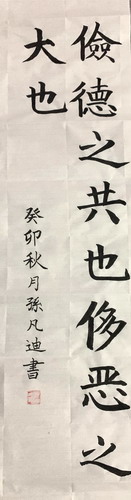 儉德之共也侈恶之
大也
癸卯秋月孫凡迪書